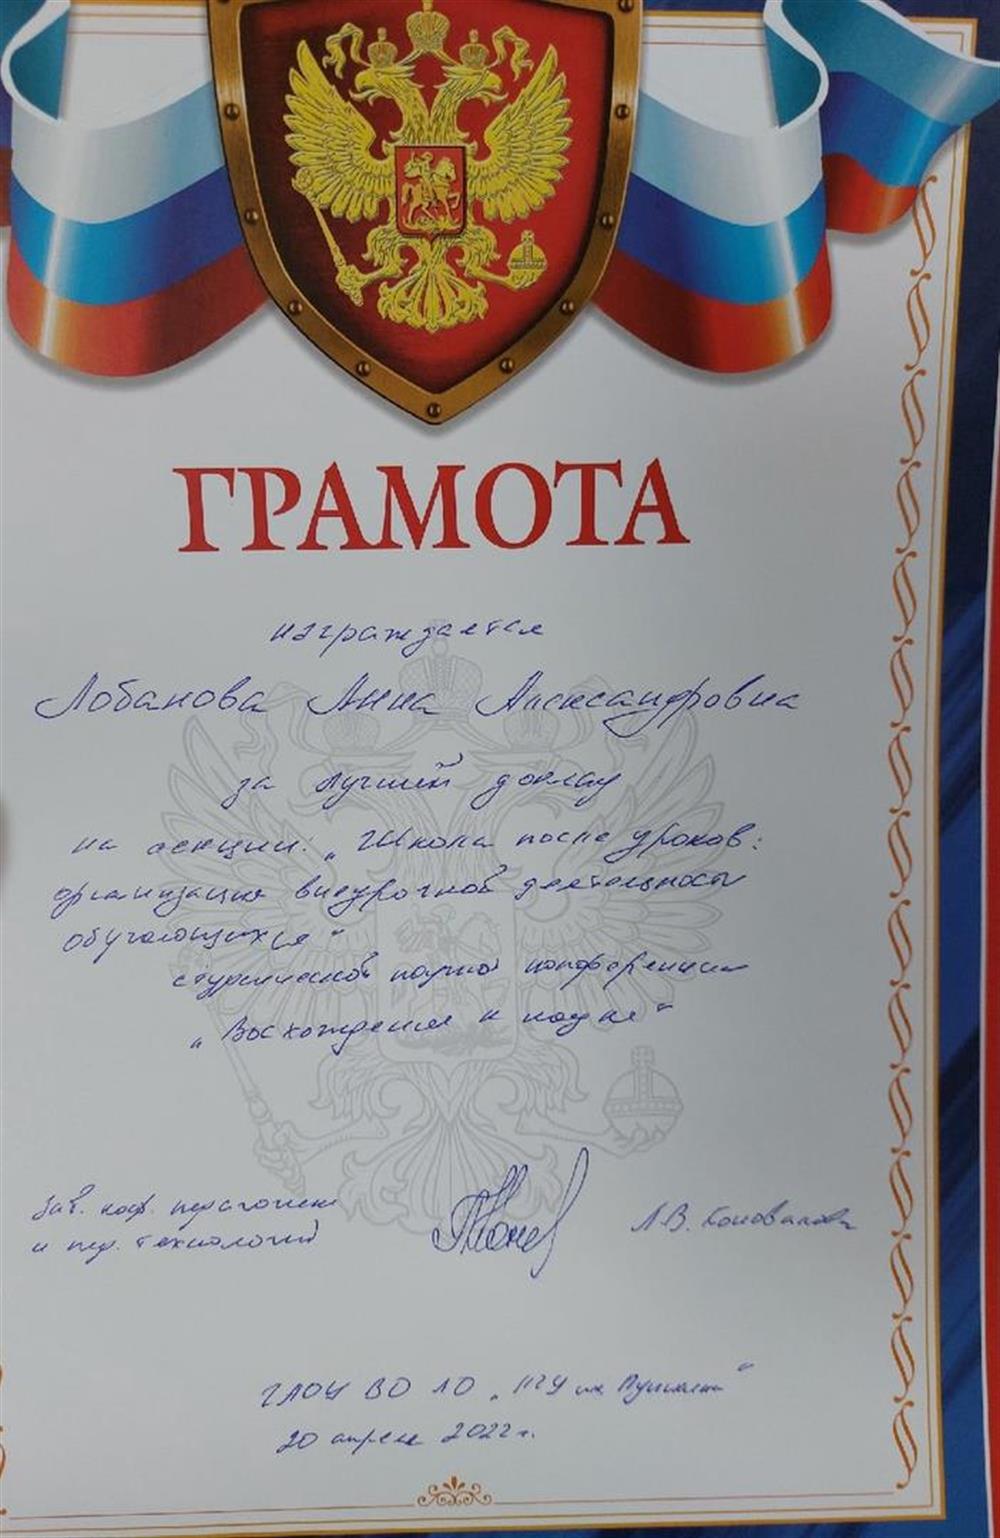 ГРАМОТА
награждается
Лобанова Анна Александровна
за лучший доклад
на секции: „Школа после уроков:
организация внеурочной деятельности
обучающихся"
студенческой научной конференции
„Восхождение к науке"
Зав. каф. педагогики
и пед. технологий
Л.В. Коновалова
ГАОУ ВО ЛО „ЛГУ им. Пушкина"
20 апреля 2022 г.